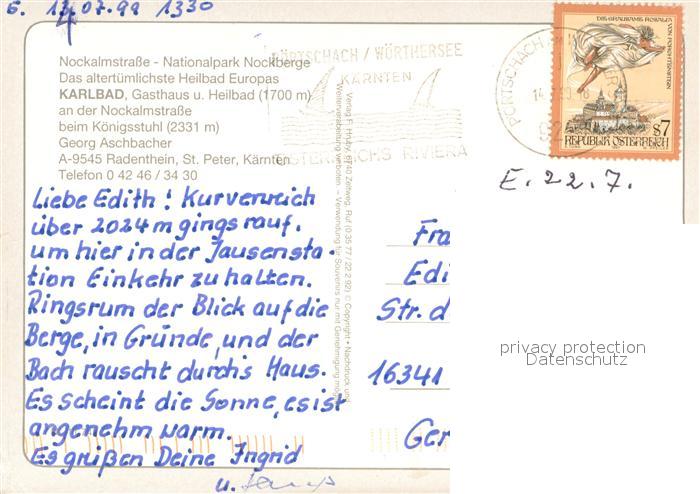 6. 13.07.99 1330
4
Nockalmstraße - Nationalpark Nockberge
Das altertümlichste Heilbad Europas
KARLBAD, Gasthaus u. Heilbad (1700 m)
an der Nockalmstraße
beim Königsstuhl (2331 m)
Georg Aschbacher
A-9545 Radenthein, St. Peter, Kärnten
Telefon 0 42 46 / 34 30
PÖRTSCHACH / WÖRTHERSEE
KÄRNTEN
ÖSTERREICHS RIVIERA
PÖRTSCHACH AM
DIE GRAUSAME ROSALIA
VON FORCHTENSTEIN
S7
REPUBLIK ÖSTERREICH
E. 22.7.
Liebe Edith! Kurvenreich
über 2024 m gings rauf.
um hier in der Jausensta-
tion Einkehr zu halten.
Ringsrum der Blick auf die
Berge, in Gründe, und der
Bach rauscht durch's Haus.
Es scheint die Sonne, es ist
angenehm warm.
Es grüßen Deine Ingrid
u.
Verlag F. Hruby, 8740 Zeltweg, Ruf (0 35 77 / 22 2 92) © Copyright • Nachdruck und
Weiterverarbeitung verboten – Verwendung für Souvenirs nur mit Genehmigung
Fra
Edi
Str. d
16341
Ger
privacy protection
Datenschutz